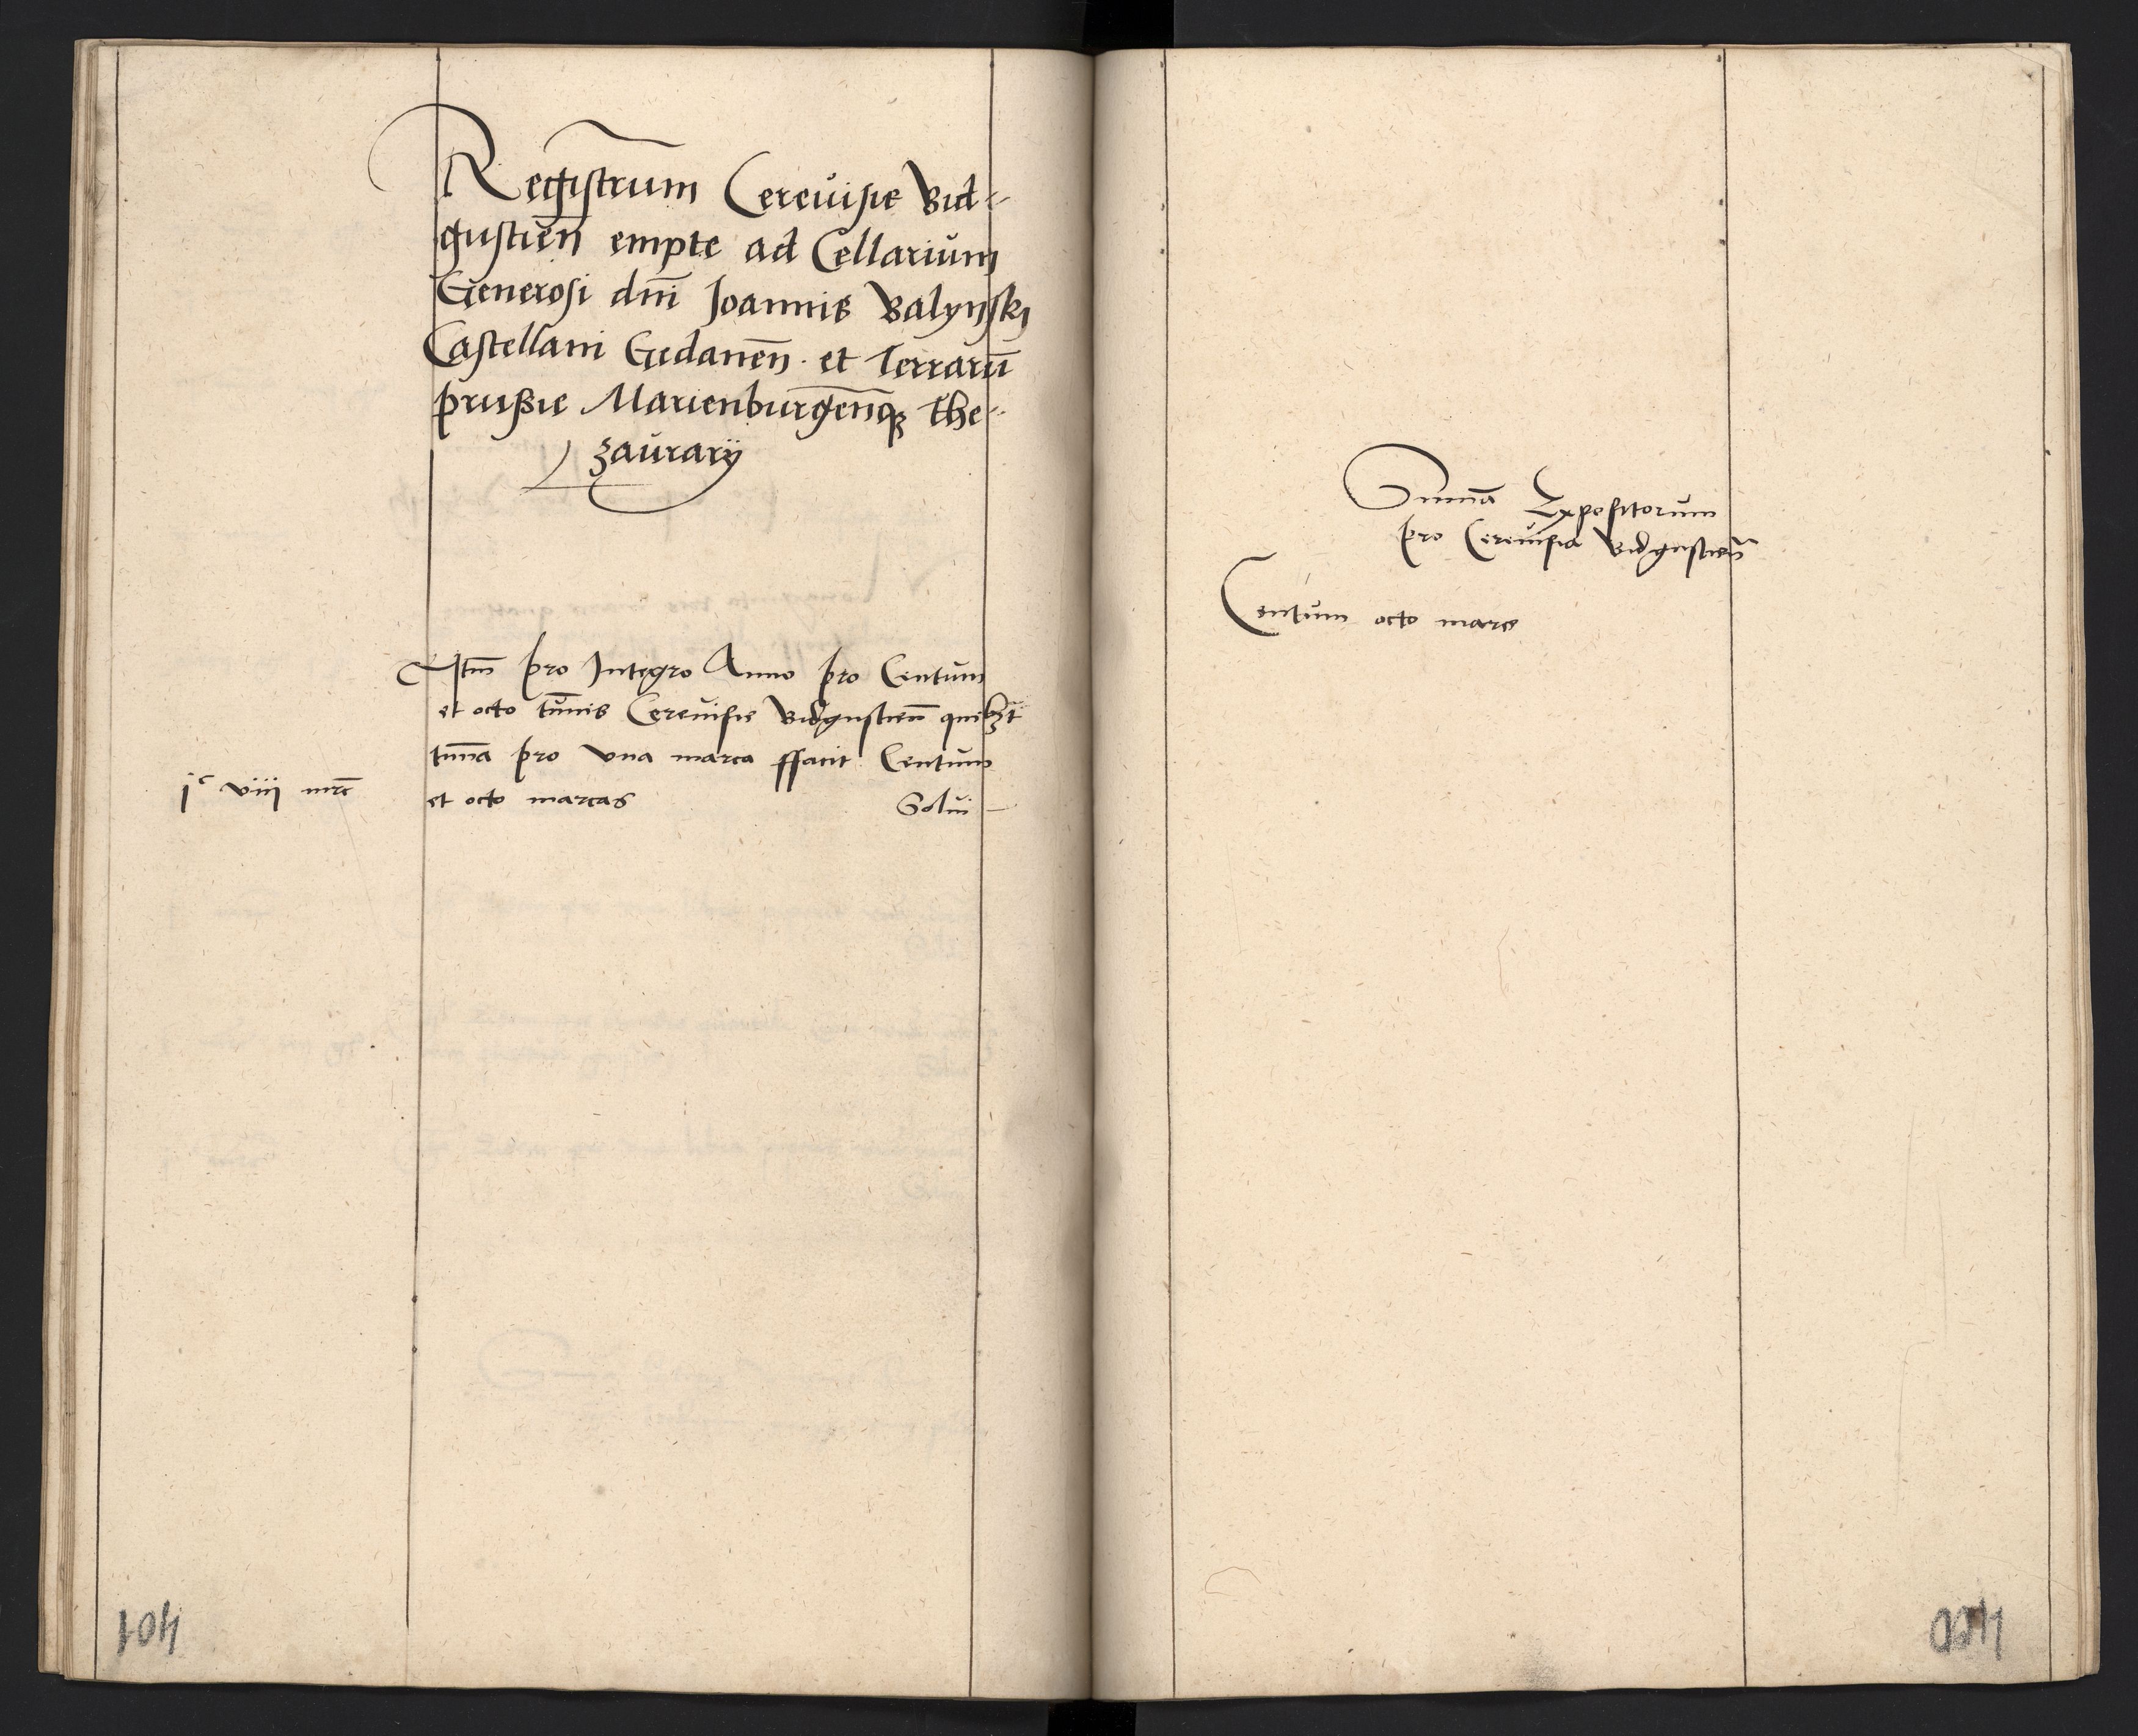 Registrum Cerevisie Bid-
gustień empte ad Cellarium
Generosi dñi Joannis Balynski
Castellani Gedaneñ. et Terrarū
prussie Marienburgeñqꝫ The-
zaurarÿ
Itm̄ pro Integro Anno pro Centum
et octo tūnis Cerevisie Bidgustień
tūna pro una marca ffacit Centum
jᶜ viij mrc̄
et octo marcas Solui
Sum̄a Expositorum
pro Cerevisia Bidgustień
Centum octo marc
401
400